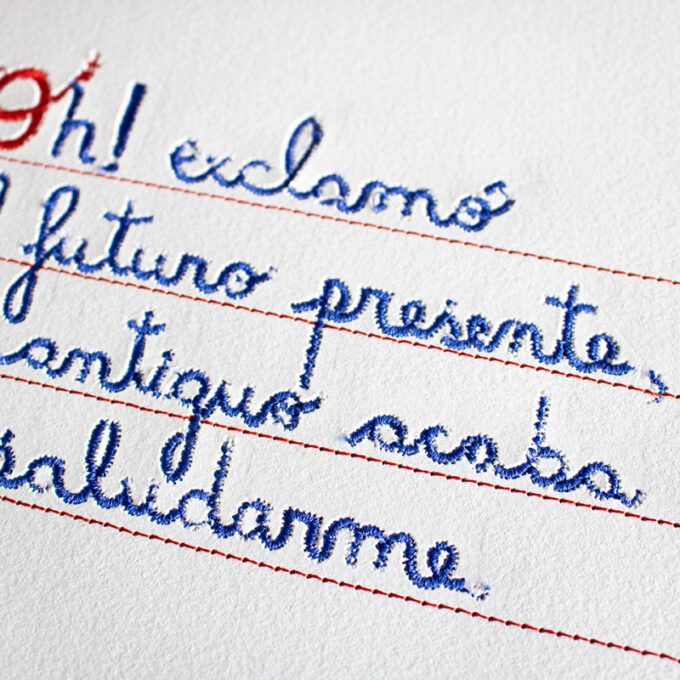 Oh! exclamó
futuro presente,
antiguo acaba
saludarme.